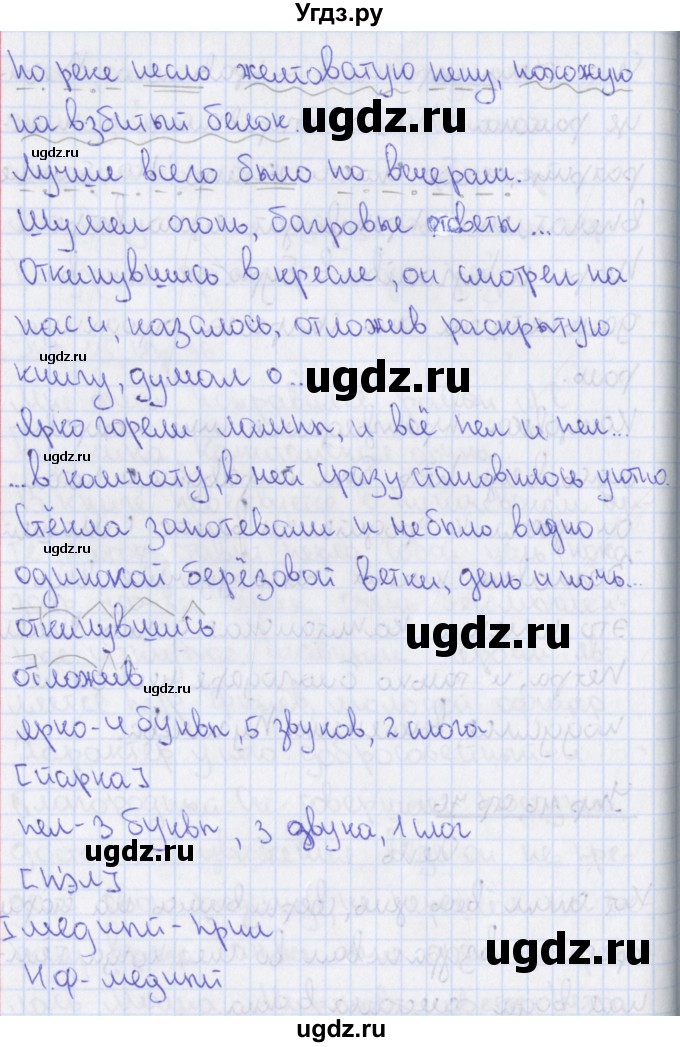 Угдз.ру
по реке несло желтоватую пену, похожую
на взбитый белок.
ugdz.ru
ugdz.ru
Лучше всего было по вечерам.
Шумел огонь, багровые отсветы ...
Откинувшись в кресле, он смотрел на
нас и, казалось, отложив раскрытую
ugdz.ru
книгу, думал о...
ugdz.ru
Ярко горели лампы, и всё пел и пел...
...в комнату, в ней сразу становилось уютно.
Стёкла запотевали и не было видно
ugdz.ru
одинокой берёзовой ветки, день и ночь...
откинувшись
ugdz.ru
отложив
ugdz.ru
ярко - 4 буквы, 5 звуков, 2 слога
[йарка]
пел - 3 буквы, 3 звука, 1 слог
ugdz.ru
[п'эл]
ugdz.ru
I медный - прил
Н.ф - медный
ugdz.ru